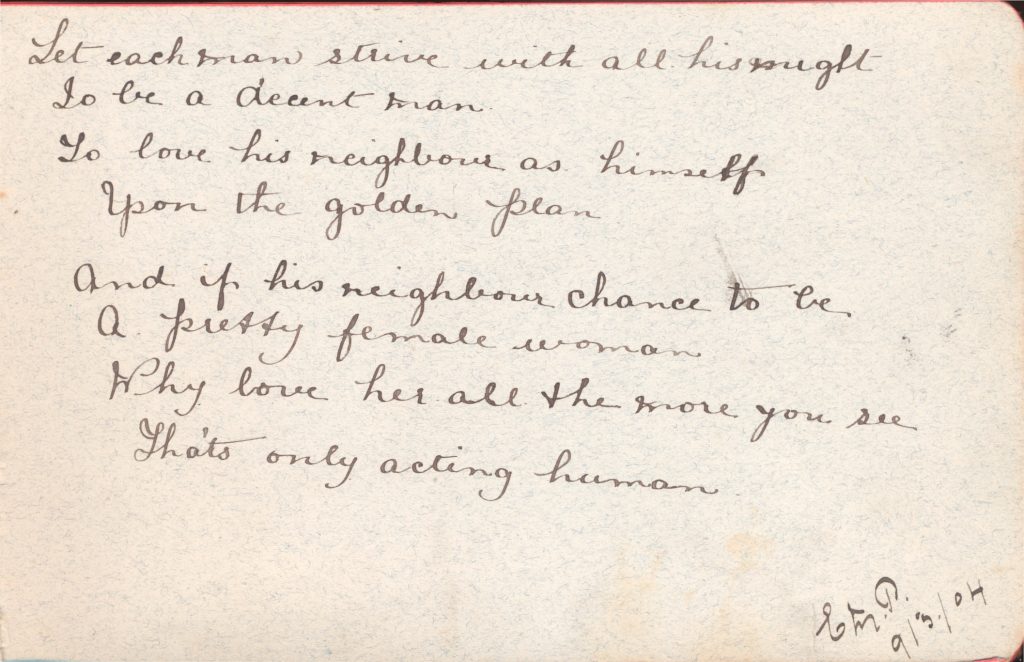 Let each man strive with all his might
To be a decent man
To love his neighbour as himself
Upon the golden plan
And if his neighbour chance to be
A pretty female woman
Why love her all the more you see
That's only acting human
E.M.P.
9/3/04